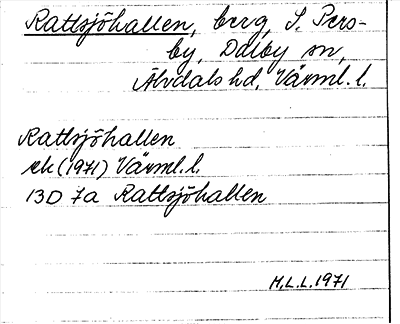 Rattsjöhallen, berg, S. Pers-
by, Dalby sn,
Älvdals hd, Värml. l.
Rattsjöhallen
ek (1971) Värml. l.
13D 7a Rattsjöhallen
H.L.L. 1971